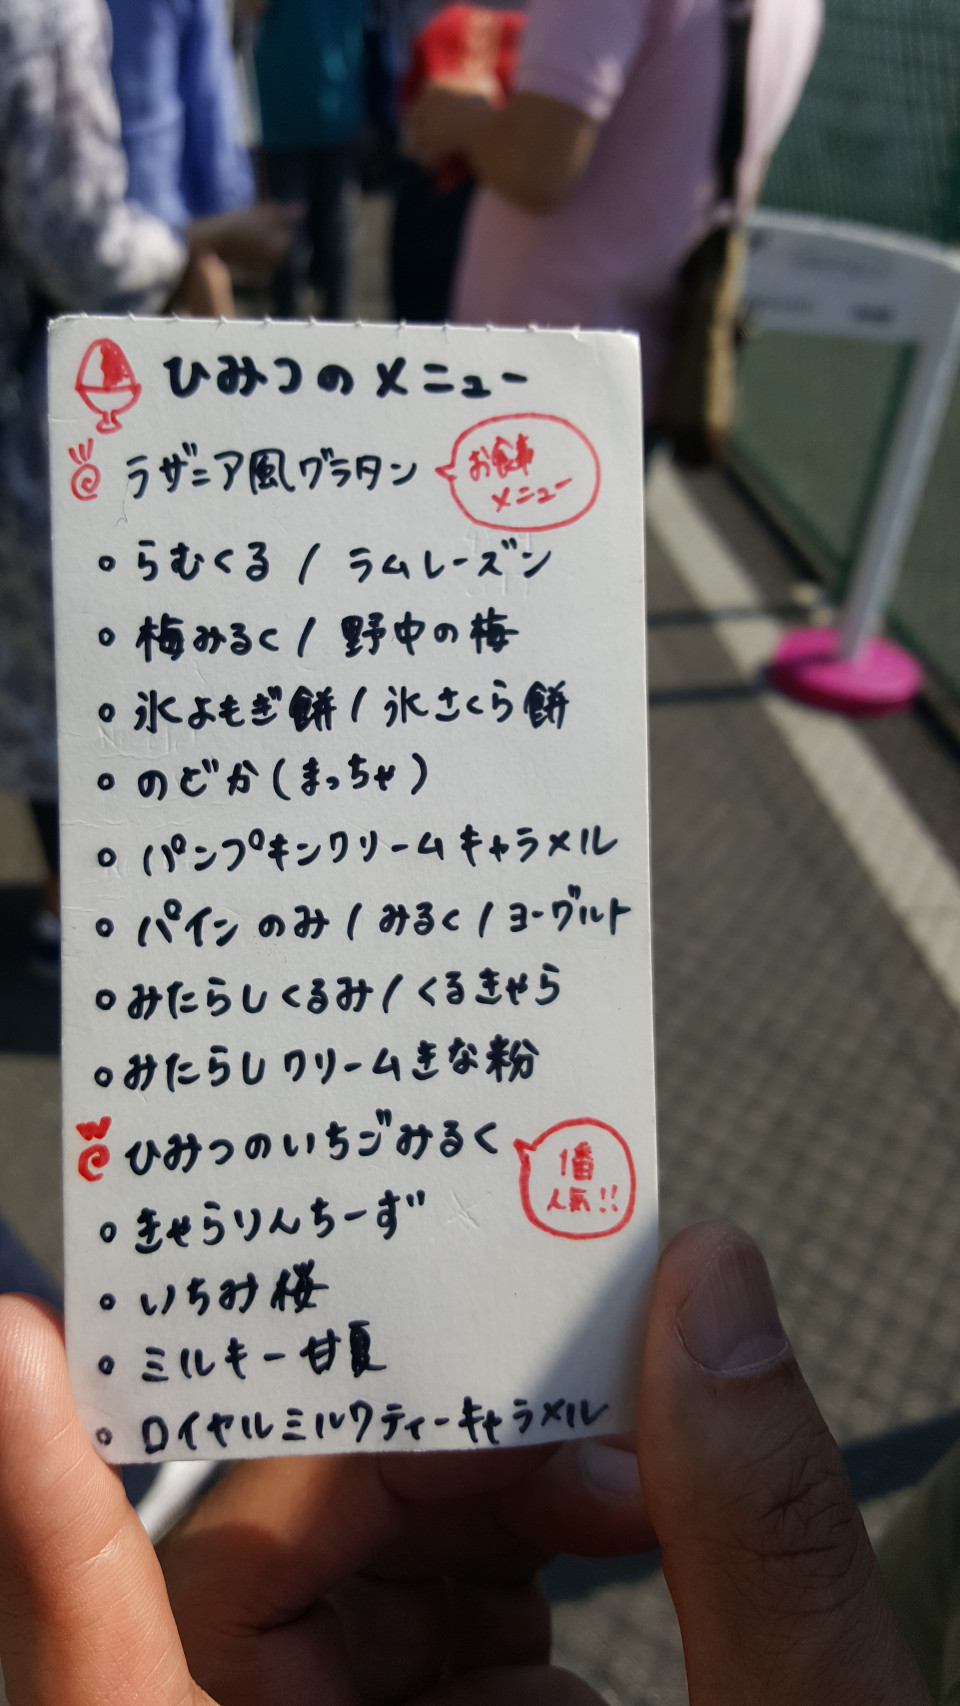 ひみつのメニュー
ラザニア風グラタン
お食事
メニュー
○らむくる / ラムレーズン
○梅みるく / 野中の梅
○氷よもぎ餅 / 氷さくら餅
○のどか(まっちゃ)
○パンプキンクリームキャラメル
○パインのみ / みるく / ヨーグルト
○みたらしくるみ / くるきゃら
○みたらしクリームきな粉
ひみつのいちごみるく
1番
人気!!
○きゃらりんちーず
○いちみ桜
○ミルキー甘夏
○ロイヤルミルクティーキャラメル